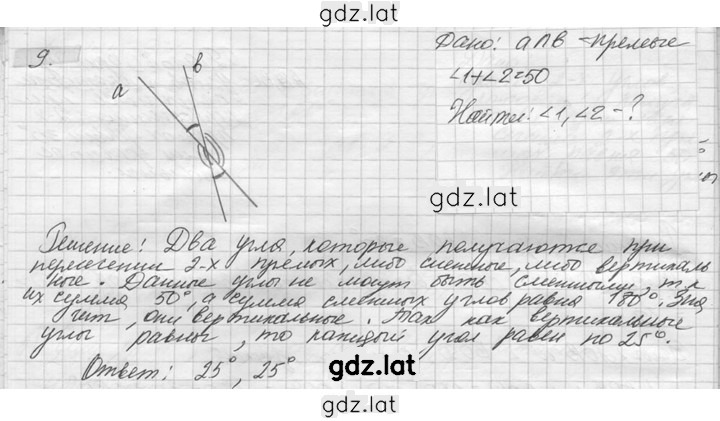 gdz.lat
9.
a
b
Дано: a∩b = прямые
∠1+∠2=50
Найти: ∠1, ∠2 - ?
gdz.lat
Решение: Два угла, которые получаются при
пересечении 2-х прямых, либо смежные, либо вертикаль
ные. Данные углы не могут быть смежными, т.к
их сумма 50°, а сумма смежных углов равна 180°. Зна
чит, они вертикальные. Так как вертикальные
углы равны, то каждый угол равен по 25°.
gdz.lat
Ответ: 25°, 25°
gdz.lat